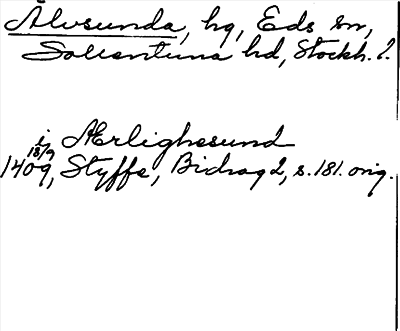 Älvsunda, hg, Eds sn,
Sollentuna hd, Stockh. l.
i Ærlighesund
18/9
1409, Styffe, Bidrag 2, s. 181. orig.